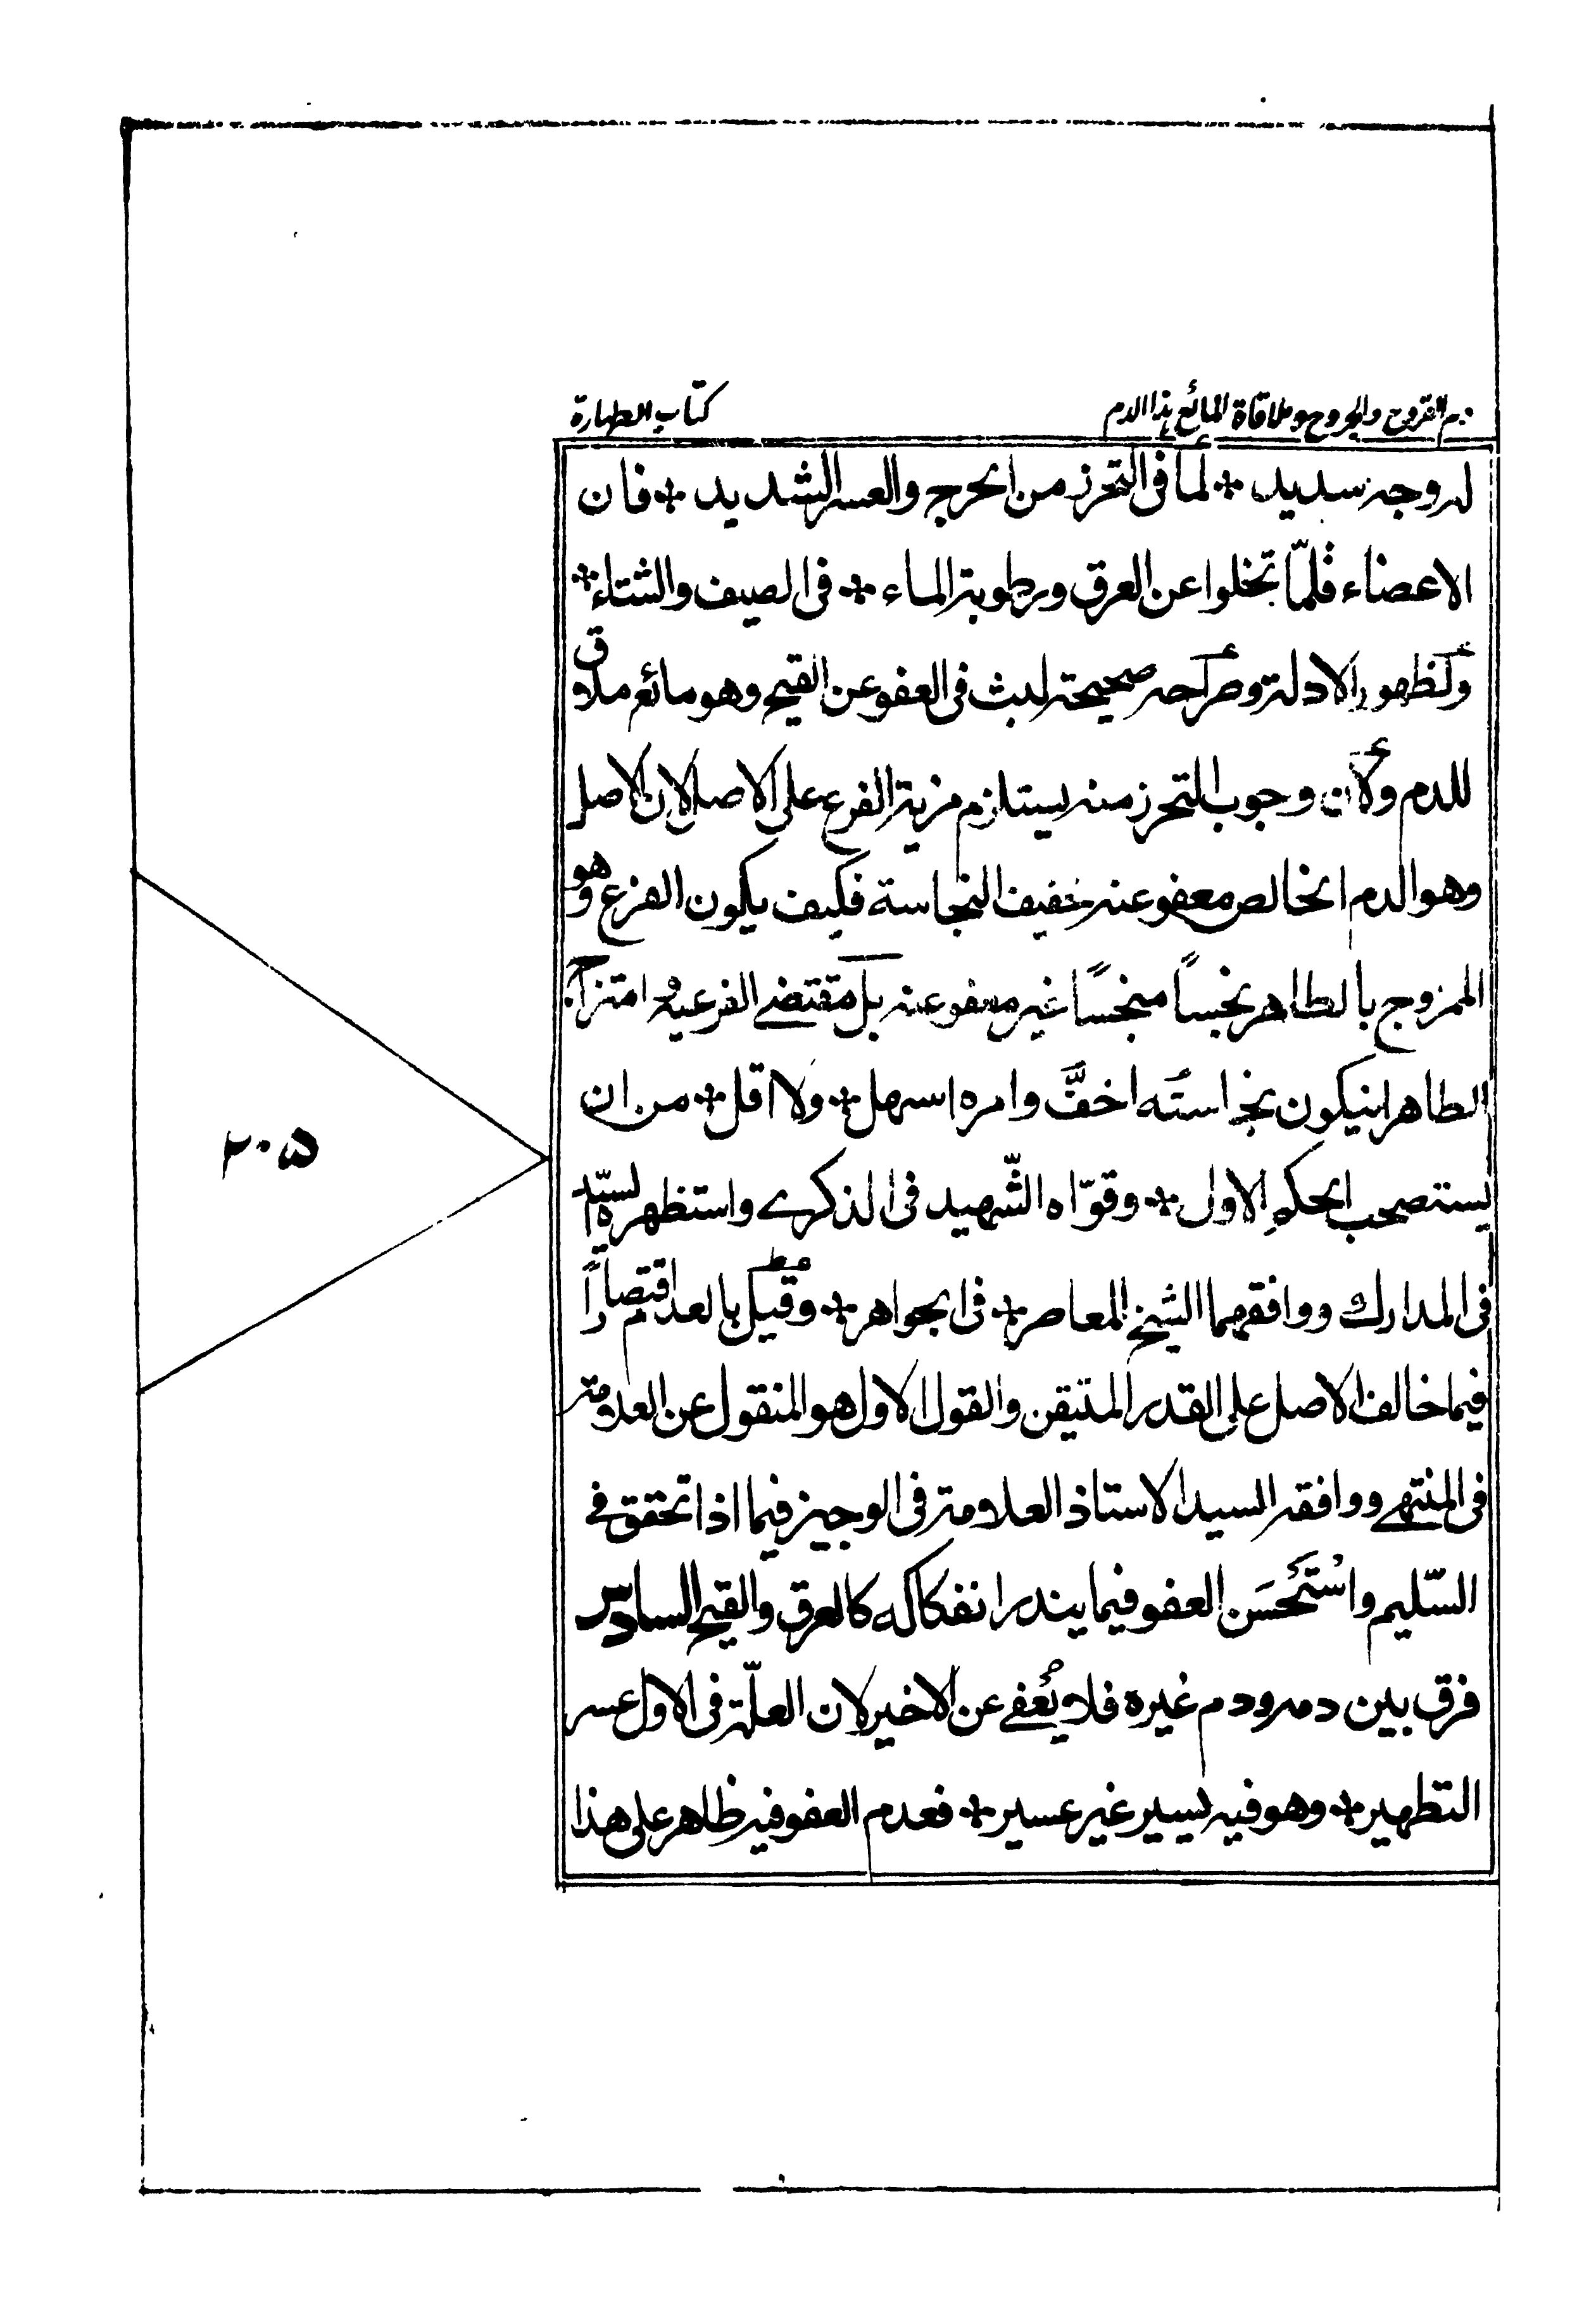 دم القروح والجروح وملاقاة المائع بذا الدم
كتاب الطهارة
له وجه سديد * لما فى التحرز من الحرج والعسر الشديد * فان
الاعضاء قلمّا تخلوا عن العرق ورطوبة الماء * فى الصيف والشتاء *
ولظهور الادلة وصراحة صحيحة ليث فى العفو عن القيح وهو مائع ملاق
للدم ولان وجوب التحرز منه يستلزم مزية الفرع على الاصل لان الاصل
وهو الدم الخالص معفو عنه خفيف النجاسة فكيف يكون الفرع وهو
الممزوج بالطاهر نجساً منجسًا غير معفو عنه بل مقتضى الفرعية وامتزاج
الطاهر ان يكون نجاسته اخفَّ وامره اسهل * ولا اقل * من ان
يستصحب الحكم الاول * وقوّاه الشّهيد فى الذكرى واستظهره السيّد
فى المدارك ووافقهما الشيخ المعاصر * فى الجواهر * وقيل بالعدم اقتصاراً
فيما خالف الاصل على القدر المتيقن والقول الاول هو المنقول عن العلامة
فى المنتهى ووافقه السيد الاستاذ العلامة فى الوجيز فيما اذا تحقق فى
السّليم واسْتَحْسَن العفو فيما يندر انفكاكه كالعرق والقيح السادس
فرق بين دمه ودم غيره فلا يُعْفى عن الاخير لان العلّة فى الاول عسر
التطهير * وهو فيه يسير غير عسير * فعدم العفو فيه ظاهر على هذا
٢٠٥